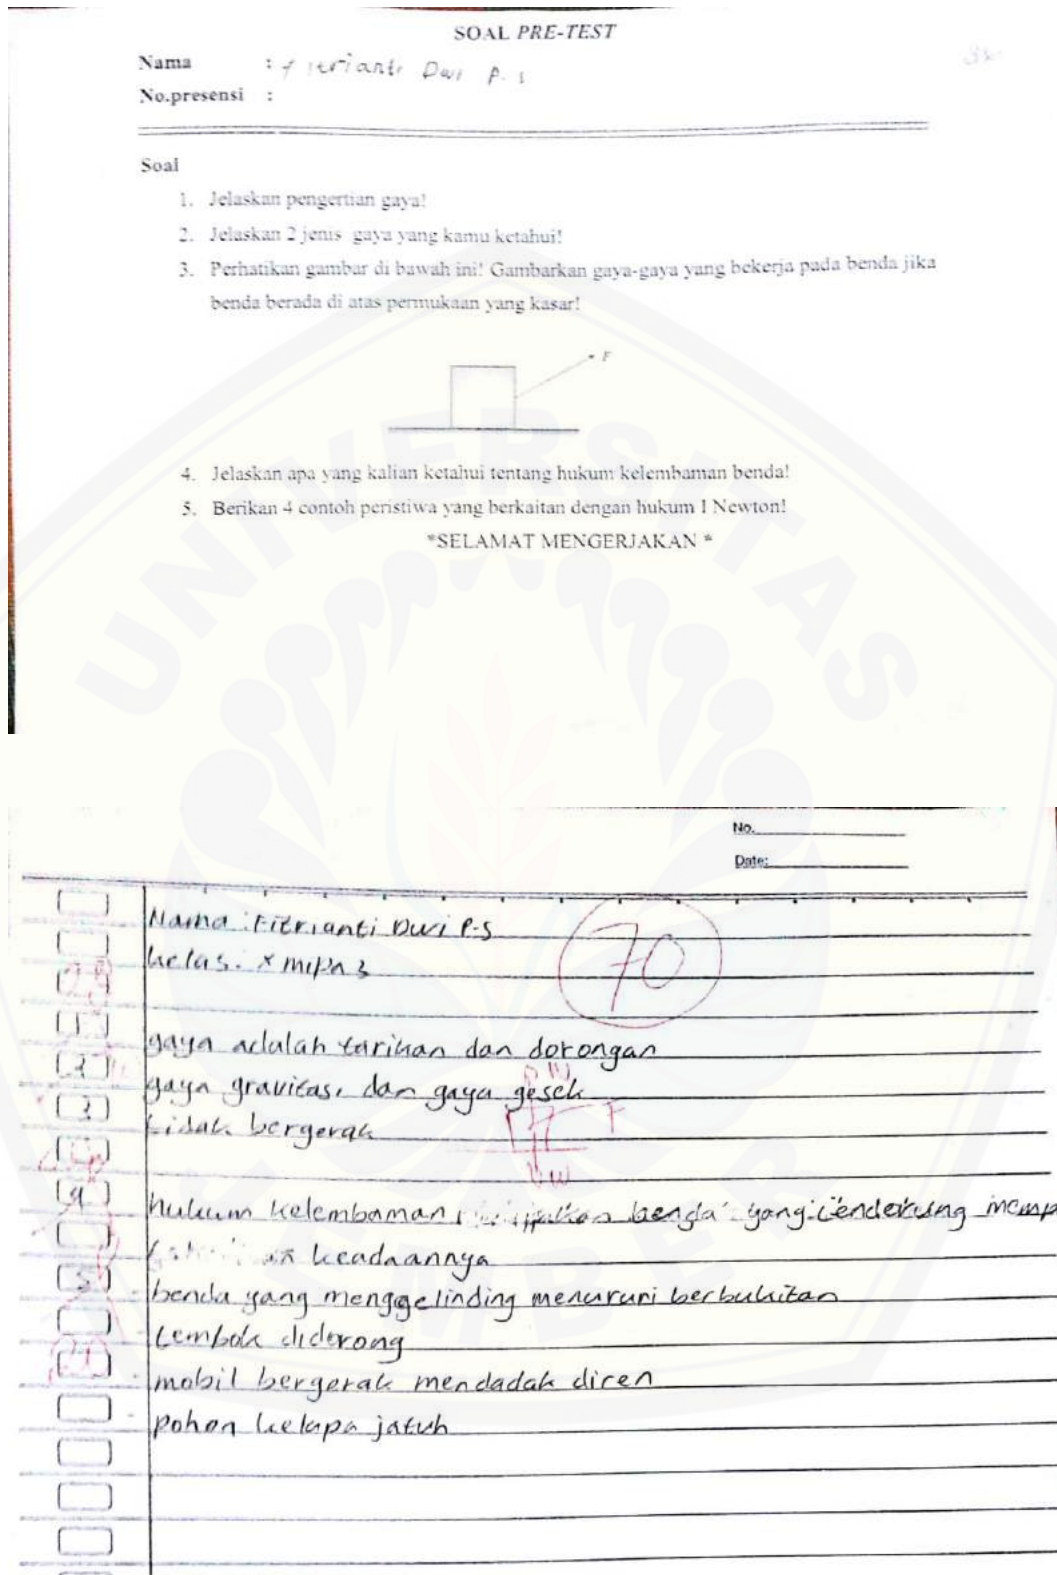 SOAL PRE-TEST
Nama : Fitrianti Dwi P. S
No.presensi :
Soal
1. Jelaskan pengertian gaya!
2. Jelaskan 2 jenis gaya yang kamu ketahui!
3. Perhatikan gambar di bawah ini! Gambarkan gaya-gaya yang bekerja pada benda jika
benda berada di atas permukaan yang kasar!
F
4. Jelaskan apa yang kalian ketahui tentang hukum kelembaman benda!
5. Berikan 4 contoh peristiwa yang berkaitan dengan hukum I Newton!
*SELAMAT MENGERJAKAN *
UNIVERSITAS
No.
Date:
Nama : Fitrianti Dwi P.S
70
kelas. X mipa 3
1 gaya adalah tarikan dan dorongan
2 gaya gravitasi dan gaya gesek
3 tidak bergerak
F
w
4 hukum kelembaman benda yang cenderung memp
keadaannya
5 benda yang menggelinding menuruni berbukitan
tembok didorong
mobil bergerak mendadak diren
pohon kelapa jatuh
JEMBER